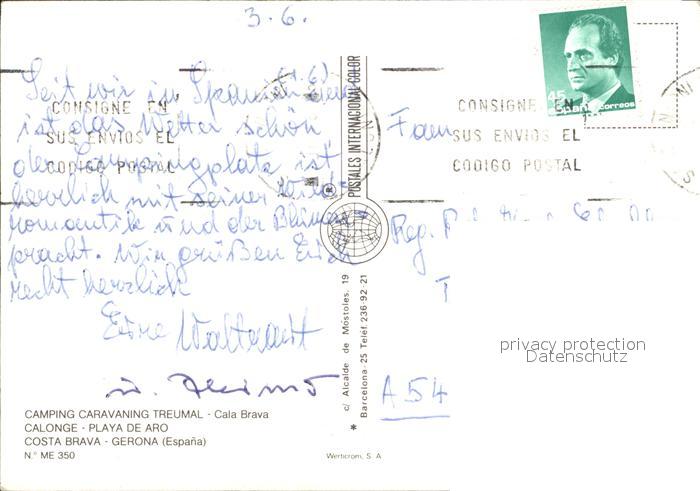 3.6.
Seit wir in Spanien sind (1.6)
ist das Wetter schön
der Campingplatz ist
herrlich mit seiner Wild-
romantik und der Blumen-
pracht. Wir grüßen Euch
recht herzlich
Eure Waltraut
u.
CONSIGNE EN
SUS ENVIOS EL
CODIGO POSTAL
CAMPING CARAVANING TREUMAL - Cala Brava
CALONGE - PLAYA DE ARO
COSTA BRAVA - GERONA (España)
N.° ME 350
POSTALES INTERNACIONAL COLOR
c/ Alcalde de Móstoles, 19
Barcelona-25 Teléf. 236-92-21
*
Werticrom, S. A
45
España correos
CONSIGNE EN
SUS ENVIOS EL
CODIGO POSTAL
Fam
Reg.
privacy protection
Datenschutz
A 54